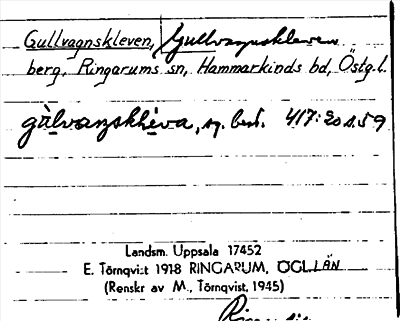 Gullvagnskleven, Gullvagnskleven
berg, Ringarums sn, Hammarkinds bd, Östg.l.
gùlvaŋskle�lova, sg. best. 417: 20 s. 59
Landsm. Uppsala 17452
E. Törnqvist 1918 RINGARUM, ÖGL.LÄN
(Renskr av M., Törnqvist, 1945)